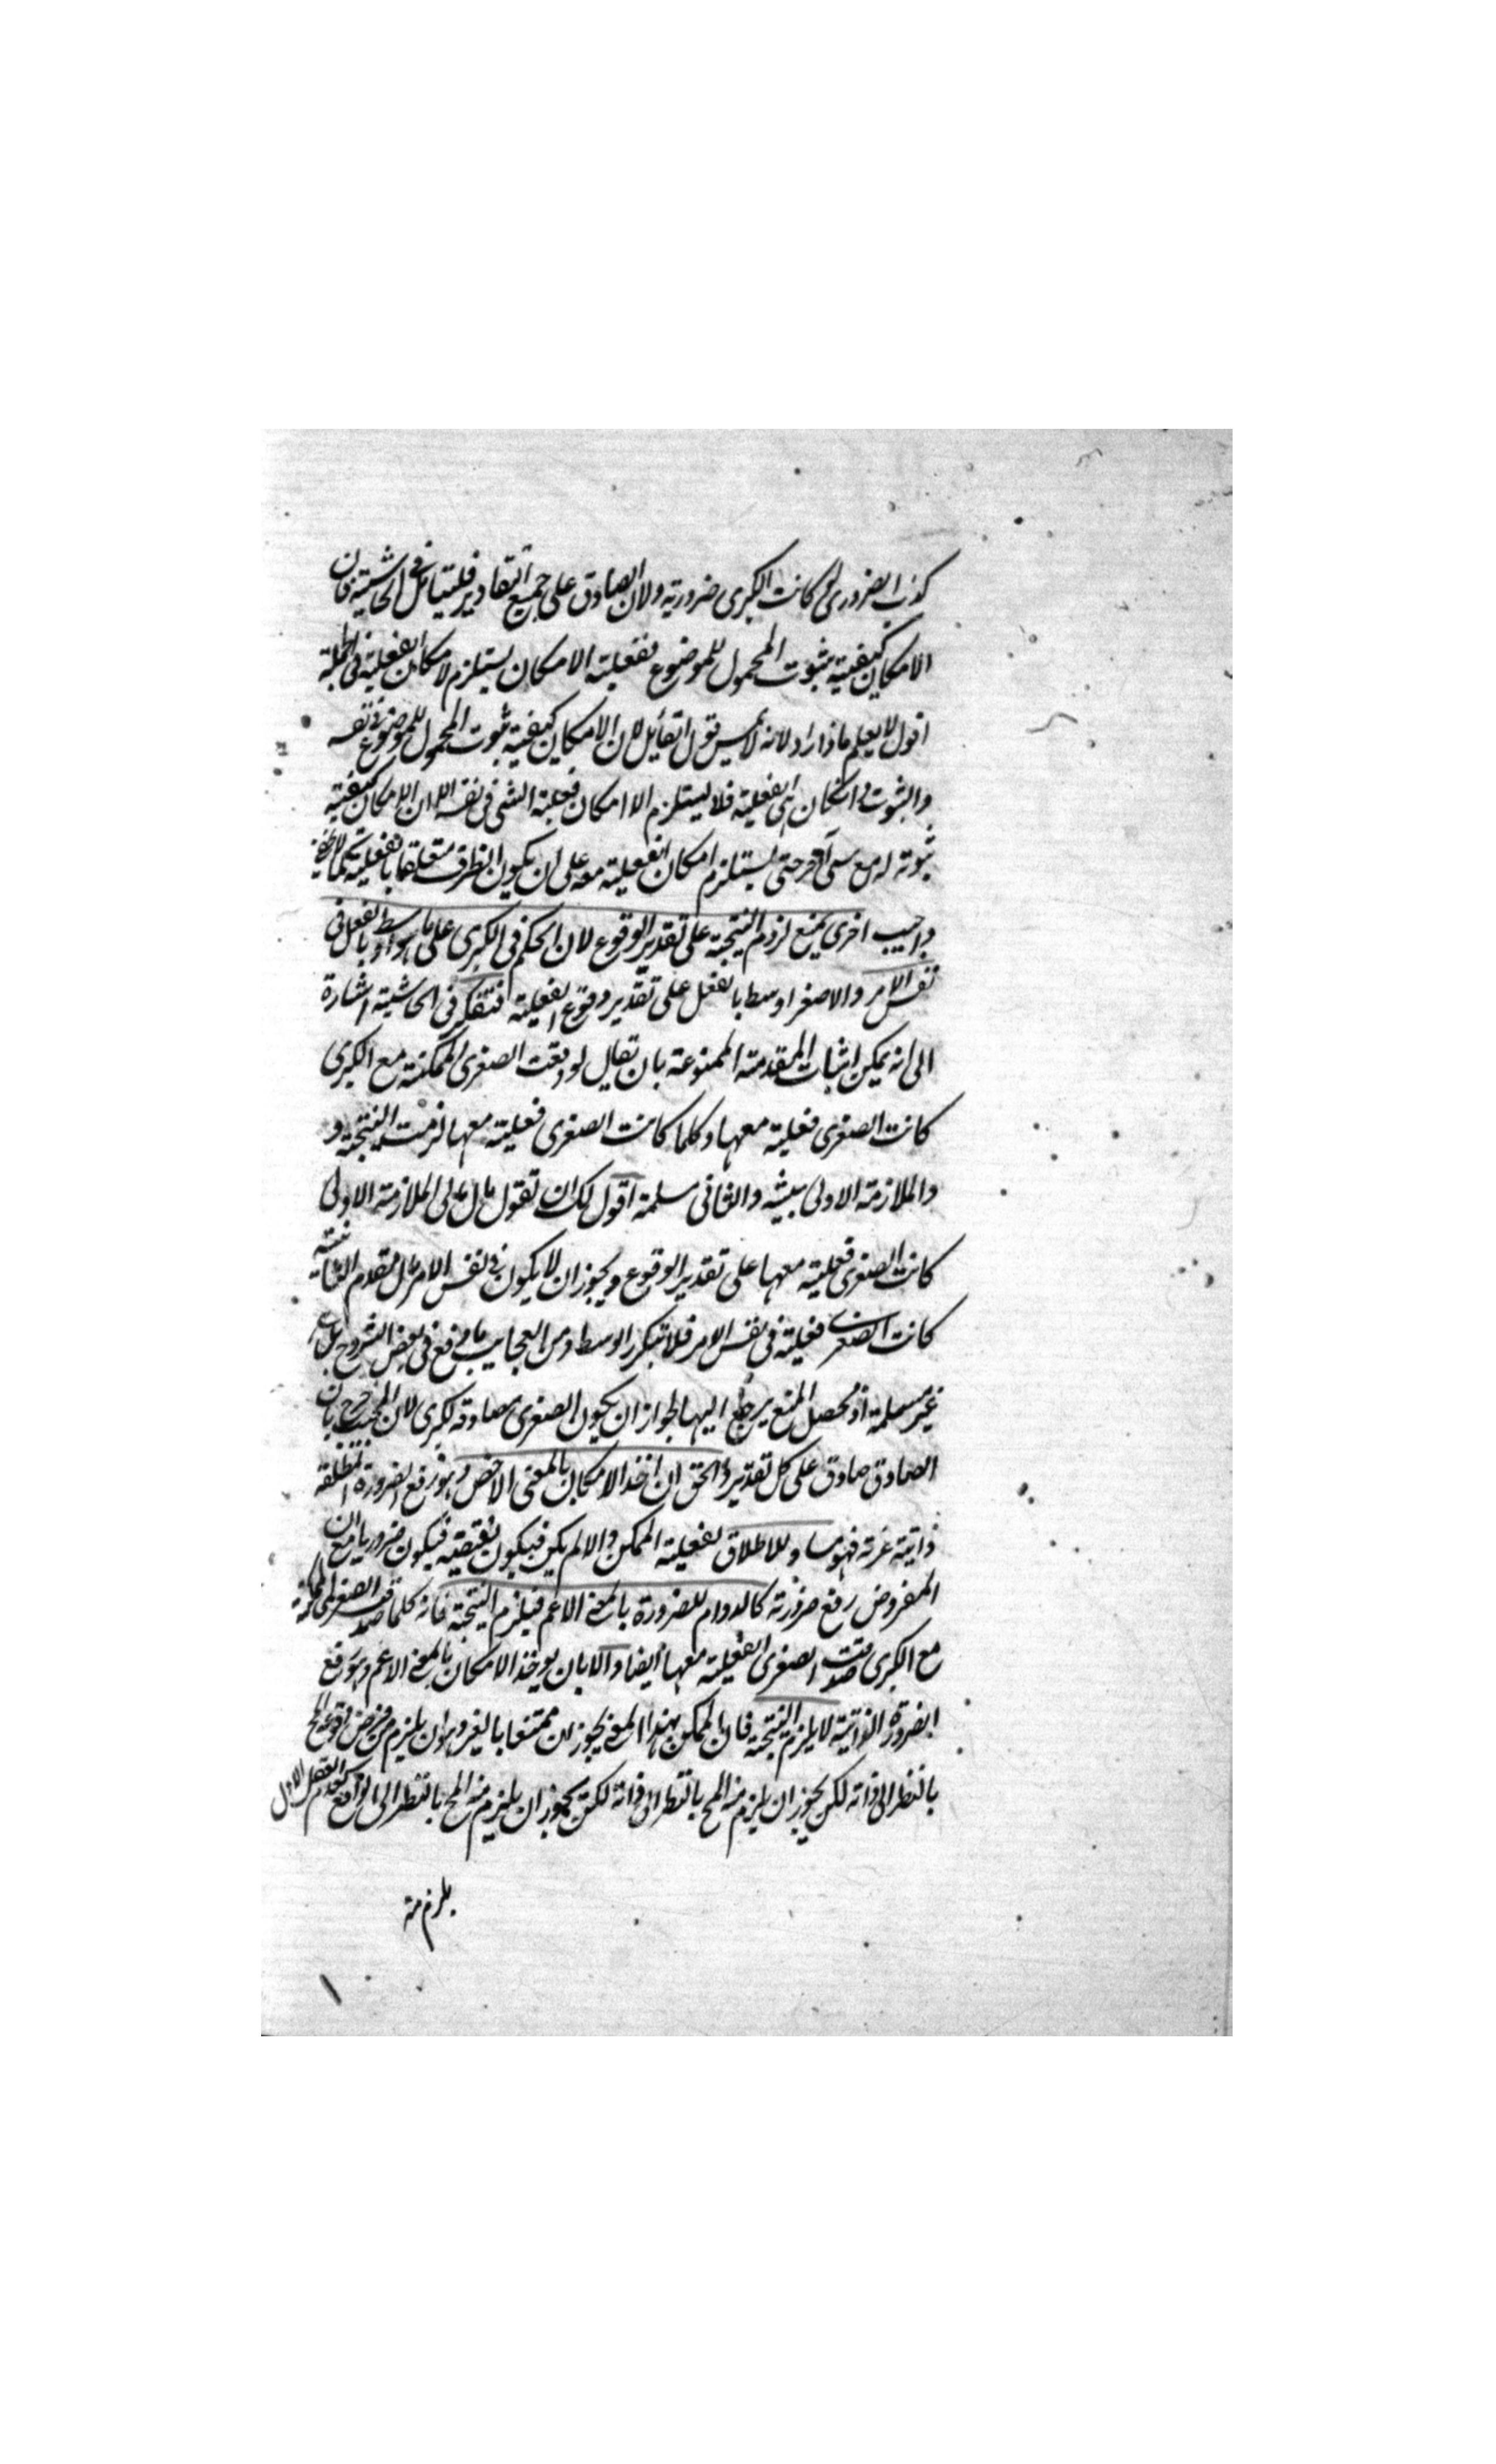 كذب الضروري لو كانت الكبرى ضرورية ولان الصادق على جميع التقادير فليتأمل في الحاشية فان
الامكان كيفية ثبوت المحمول للموضوع ففعلية الامكان يستلزم لامكان الفعلية في الجملة
اقول لا يعلم ماذا اراد لانه لا يمس قول القائل لان الامكان كيفية ثبوت المحمول للموضوع في نفسه
والثبوت وان كان هي الفعلية فلا يستلزم الا امكان فعلية الشي في نفسه لا ان الامكان كيفية
ثبوته له مع شي آخر حتى يستلزم امكان الفعلية معه على ان يكون الظرف متعلقا بالفعلية
واجيب اخرى يمنع لزوم النتيجة على تقدير الوقوع لان الحكم في الكبرى على ما هو اوسط بالفعل في
نفس الامر والاصغر اوسط بالفعل على تقدير وقوع الفعلية فتفكر في الحاشية اشارة
الى انه يمكن اثبات المقدمة الممنوعة بان تقال لو وقعت الصغرى الممكنة مع الكبرى
كانت الصغرى فعلية معها وكلما كانت الصغرى فعلية معها لزمت النتيجة و
والملازمة الاولى بينة والثاني مسلمة اقول لك ان تقول مآل تالى الملازمة الاولى
كانت الصغرى فعلية معها على تقدير الوقوع ويجوز ان لا يكون في نفس الامر مآل مقدم الثانية
كانت الصغرى فعلية في نفس الامر فلا تكرر الوسط ومن العجايب ما وقع في بعض الشروح
غير مسلمة اذ محصل المنع يرجع اليها لجواز ان يكون الصغرى مصادقة لكبرى لان المجيب صرح بان
الصادق صادق على كل تقدير والحق ان اخذ الامكان بالمعنى الاخص وهو رفع الضرورة المطلقة
ذاتية غرية فهو مساو للاطلاق لفعلية الممكن والا لم يكن فيكون نقيضه فيكون ضروريا مع ان
المفروض رفع ضرورته كالدوام للضرورة بالمعنى الاعم فيلزم النتيجة فانه كلما صدقت الصغرى الممكنة
مع الكبرى صدقت الصغرى الفعلية معها ايضا والا بان يوخذ الامكان بالمعنى الاعم وهو رفع
الضرورة الذاتية لا يلزم النتيجة فان الممكن بهذا المعنى يجوز ان ممتنعا بالغير وهو ان يلزم من فرض وقوعه المح
بالنظر الى ذاته لكن يجوز ان يلزم منه المح بالنظر الى ذاته لكن يجوز ان يلزم منه المح بالنظر الى الواقع كعدم العقل الاول
يلزم منه